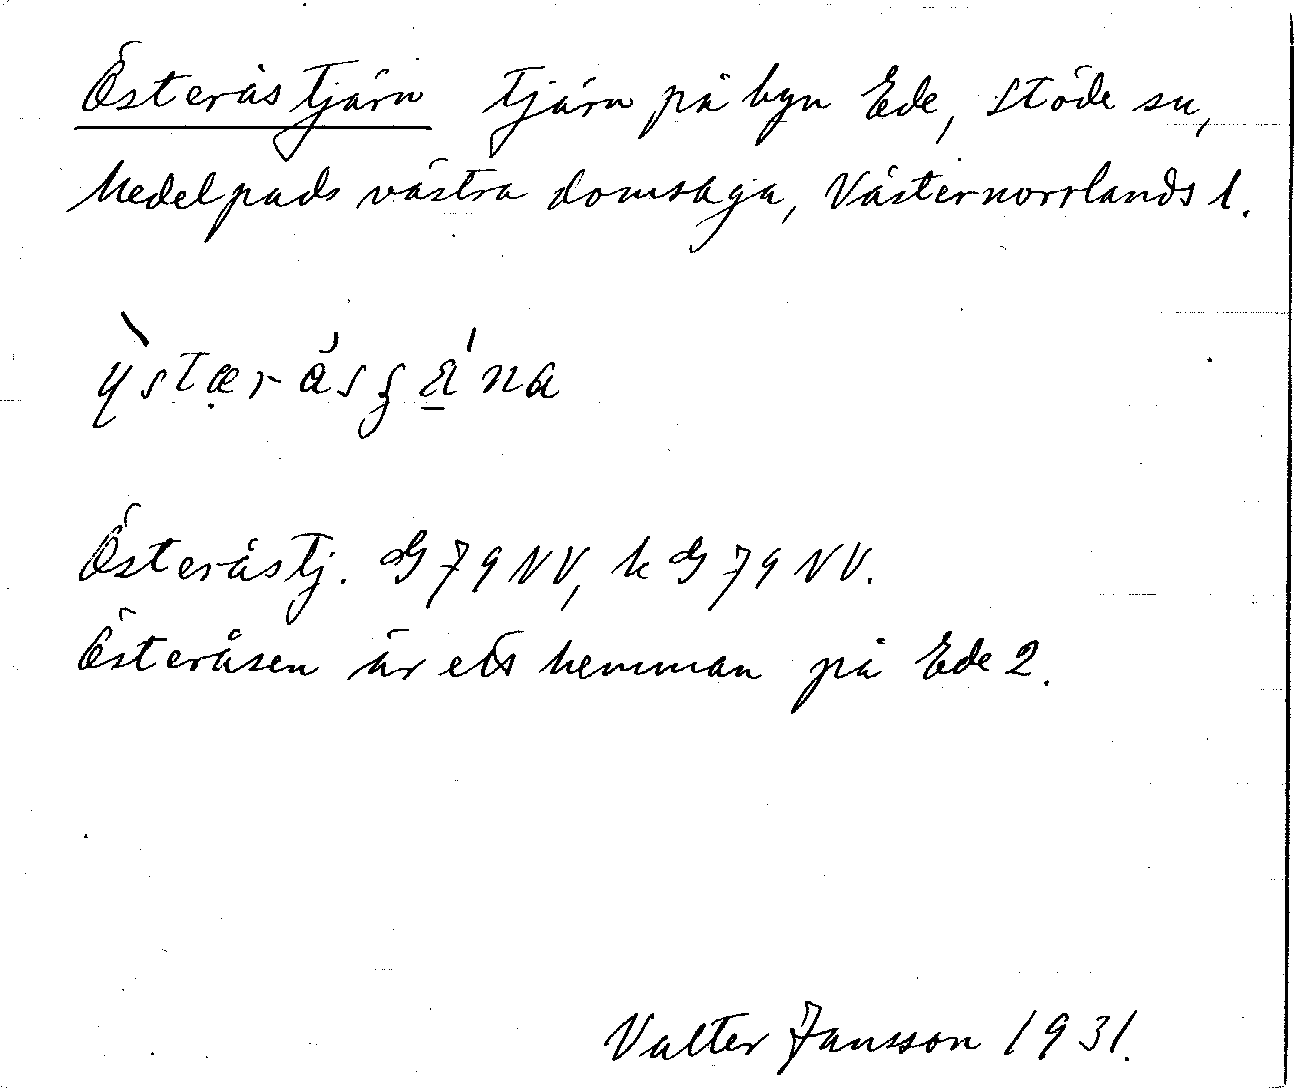 Österåstjärn tjärn på byn Ede, Stöde sn,
Medelpads västra domsaga, Västernorrlands l.
Österåstj. G 79 NV, k G 79 NV.
Österåsen är ett hemman på Ede 2.
Valter Jansson 1931.